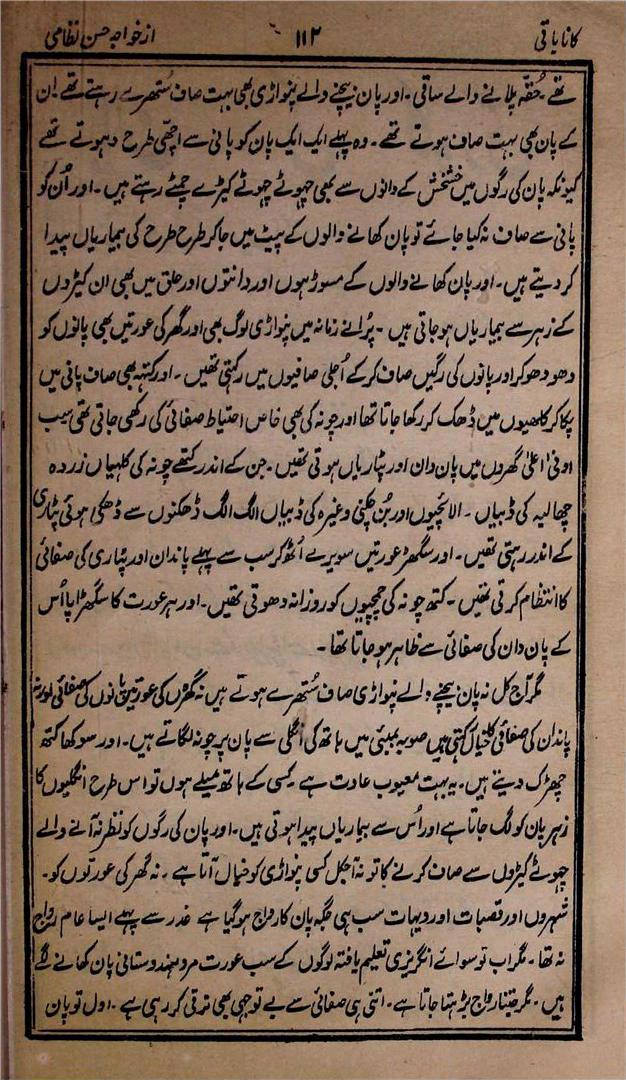 کانا باتی ۱۱۲ از خواجہ حسن نظامی
تھے۔ حُقّہ پلانے والے ساقی۔ اور پان بیچنے والے پنواڑی بھی بہت صاف سُتھرے رہتے تھے۔ ان
کے پان بھی بہت صاف ہوتے تھے۔ وہ پہلے ایک ایک پان کو پانی سے اچھّی طرح دہوتے تھے
کیونکہ پان کی رگوں میں خشخش کے دانوں سے بھی چہوٹے چہوٹے کیڑے چمٹے رہتے ہیں۔ اور اُن کو
پانی سے صاف نہ کیا جائے تو پان کھانے والوں کے پیٹ میں جاکر طرح طرح کی بیماریاں پیدا
کر دیتے ہیں۔ اور پان کھانے والوں کے مسوڑہوں اور دانتوں اور حلق میں بھی ان کیڑوں
کے زہر سے بیماریاں ہوجاتی ہیں۔ پُرانے زمانہ میں پنواڑی لوگ بھی اور گھر کی عورتیں بھی پانوں کو
دھو دھوکر اور پانوں کی رگیں صاف کرکے اُجلی صافیوں میں رکہتی تھیں۔ اور کتہہ بھی صاف پانی میں
پکاکر کلہیوں میں ڈھک کر رکھا جاتا تھا اور چونہ کی بھی خاص احتیاط صفائی کی رکھی جاتی تھی سب
ادنیٰ اعلیٰ گھروں میں پان دان اور پٹاریاں ہوتی تھیں۔ جن کے اندر کتھے چونہ کی کلہیاں زردہ
چھالیہ کی ڈبیاں۔ الائچیوں اور بُن چکنی وغیرہ کی ڈبیاں الگ الگ ڈھکنوں سے ڈھکی ہوئی پٹاری
کے اندر رہتی تھیں۔ اور سگھڑ عورتیں سویرے اُٹھ کر سب سے پہلے پاندان اور پٹاری کی صفائی
کا انتظام کرتی تھیں۔ کتھ چونہ کی چمچیوں کو روزانہ دھوتی تھیں۔ اور ہر عورت کا سگھڑاپا اُس
کے پان دان کی صفائی سے ظاہر ہوجاتا تھا۔
مگر آج کل نہ پان بیچنے والے پنواڑی صاف سُتھرے ہوتے ہیں نہ گھروں کی عورتیں پانوں کی صفائی اور نہ
پاندان کی صفائی کا خیال رکہتی ہیں صوبہ بمبئی میں ہاتھ کی اُنگلی سے پان پر چونہ لگاتے ہیں۔ اور سوکھا کتھ
چھڑک دیتے ہیں۔ یہ بہت معیوب عادت ہے۔ کسی کے ہاتھ میلے ہوں تو اس طرح انگلیوں کا
زہر پان کو لگ جاتا ہے اور اُس سے بیماریاں پیدا ہوتی ہیں۔ اور پان کی رگوں کو نظر نہ آنے والے
چہوٹے کیڑوں سے صاف کرنے کا تو نہ آجکل کسی پنواڑی کو خیال آتا ہے۔ نہ گھر کی عورتوں کو۔
شہروں اور قصبات اور دیہات سب ہی جگہ پان کا رواج ہوگیا ہے غدر سے پہلے ایسا عام رواج
نہ تھا۔ مگر اب تو سوائے انگریزی تعلیم یافتہ لوگوں کے سب عورت مرد ہندوستانی پان کھانے لگے
ہیں۔ مگر جتنا رواج بڑہتا جاتا ہے۔ اتنی ہی صفائی سے بے توجہی بھی ترقی کر رہی ہے۔ اول تو پان